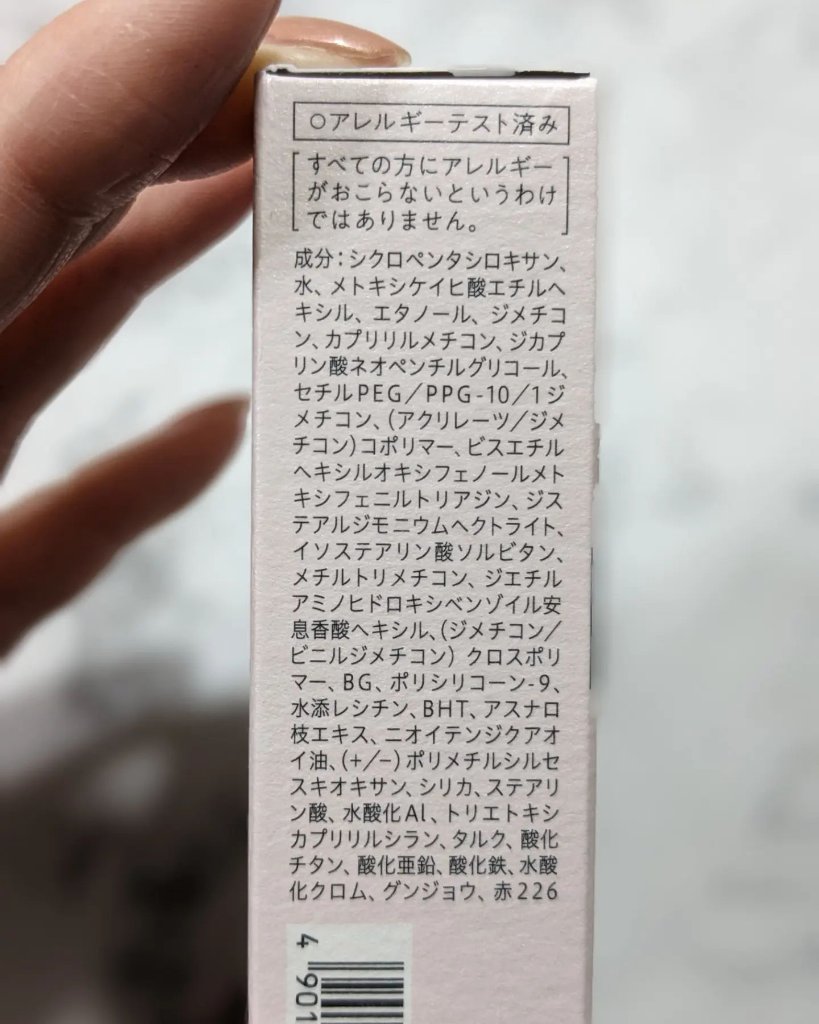 ○アレルギーテスト済み
すべての方にアレルギー
がおこらないというわけ
ではありません。
成分:シクロペンタシロキサン、
水、メトキシケイヒ酸エチルヘ
キシル、エタノール、ジメチコ
ン、カプリリルメチコン、ジカプ
リン酸ネオペンチルグリコール、
セチルPEG/PPG-10/1ジ
メチコン、(アクリレーツ/ジメ
チコン)コポリマー、ビスエチル
ヘキシルオキシフェノールメト
キシフェニルトリアジン、ジス
テアルジモニウムヘクトライト、
イソステアリン酸ソルビタン、
メチルトリメチコン、ジエチル
アミノヒドロキシベンゾイル安
息香酸ヘキシル、(ジメチコン/
ビニルジメチコン)クロスポリ
マー、BG、ポリシリコーン-9、
水添レシチン、BHT、アスナロ
枝エキス、ニオイテンジクアオ
イ油、(+/-)ポリメチルシルセ
スキオキサン、シリカ、ステアリ
ン酸、水酸化Al、トリエトキシ
カプリリルシラン、タルク、酸化
チタン、酸化亜鉛、酸化鉄、水酸
化クロム、グンジョウ、赤226
4 901